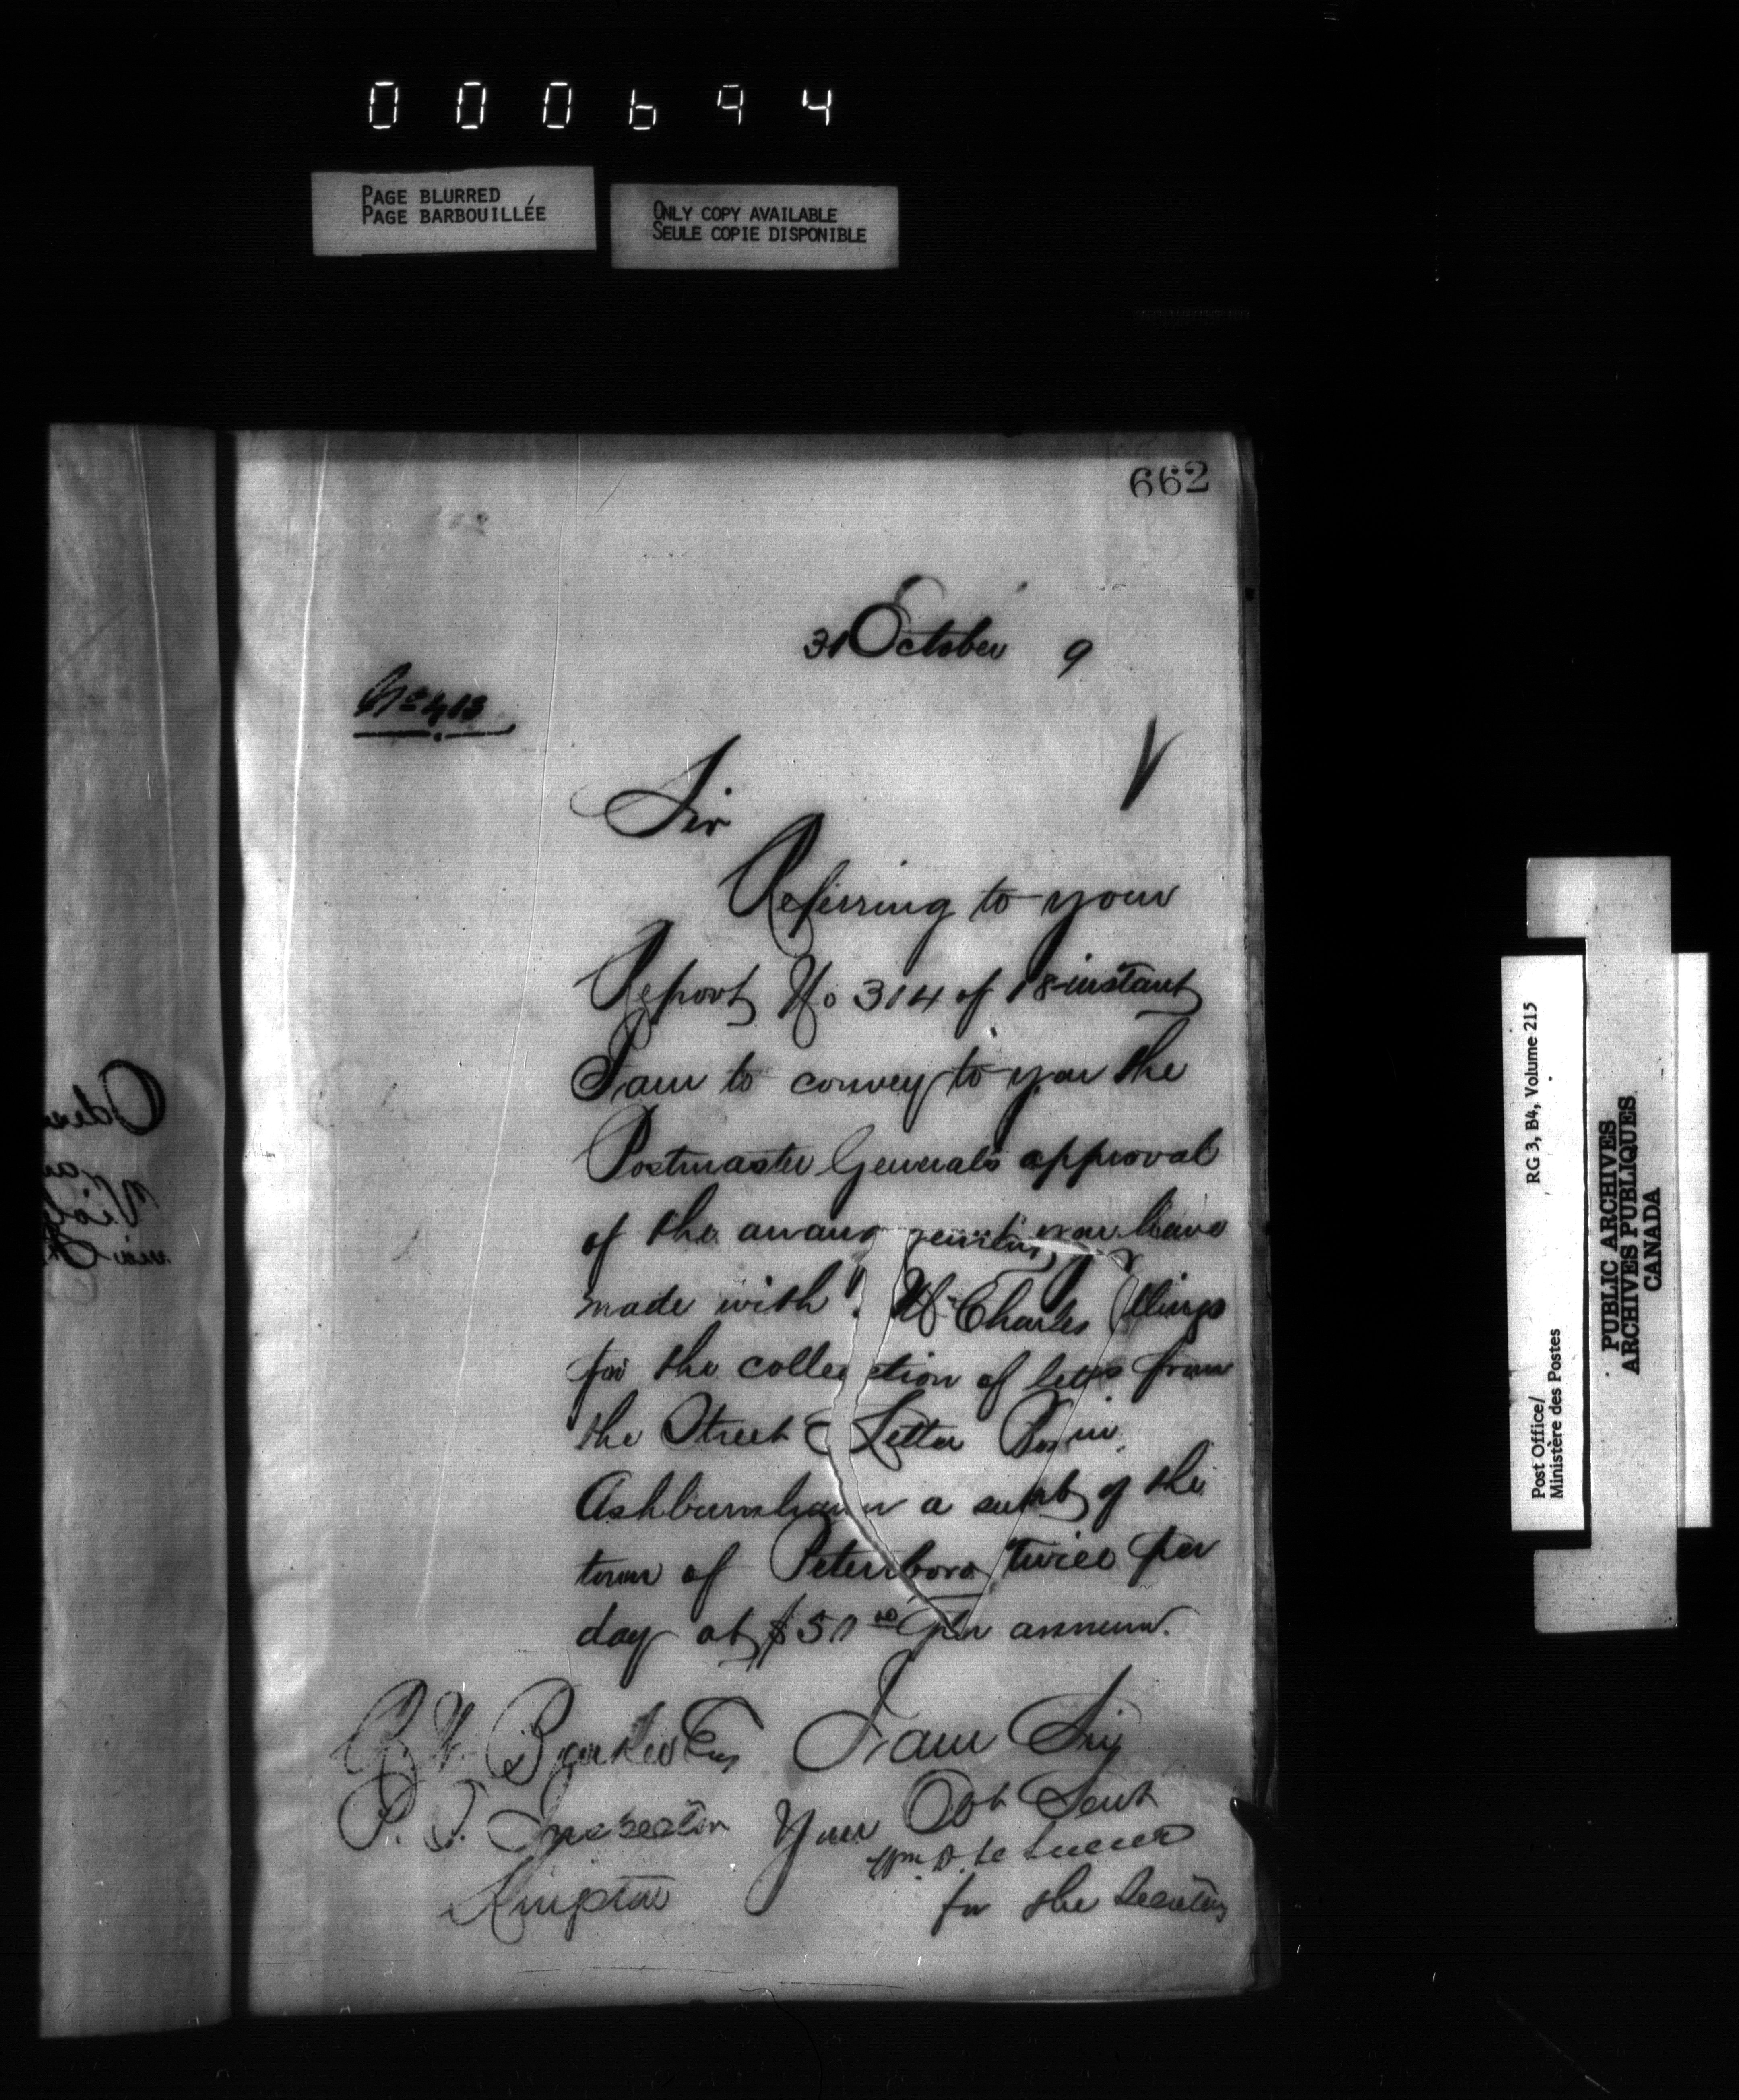 000694
PAGE BLURRED
PAGE BARBOUILLÉE
ONLY COPY AVAILABLE
SEULE COPIE DISPONIBLE
662
31 October 9
No 413
Sir
Referring to your
Report No 314 of 18 instant
I am to convey to you the
Postmaster General's approval
of the arrangements you have
made with Mr Charles
for the collection of letters from
the Street Letter Box in
Ashburnham a suburb of the
town of Peterboro twice per
day at $50 00 per annum.
I am Sir
Your Obt Servt
Wm D. Le Sueur
for the Secretary
R. W. Barker Esq
P. O. Inspector
Kingston
Post Office/
Ministère des Postes
RG 3, B4, Volume 215
PUBLIC ARCHIVES
ARCHIVES PUBLIQUES
CANADA